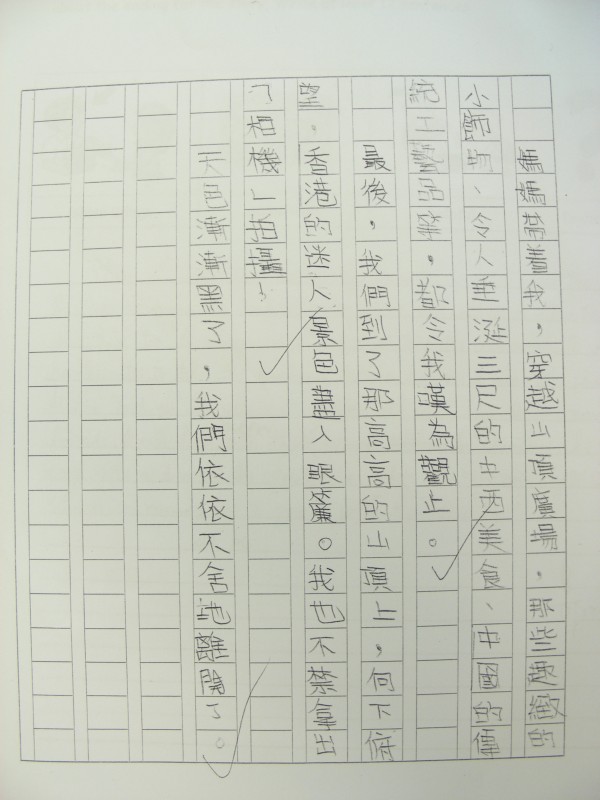 媽媽帶着我，穿越山頂廣場。那些趣緻的
小飾物、令人垂涎三尺的中西美食、中國的傳
統工藝品等，都令我嘆為觀止。
最後，我們到了那高高的山頂上，向下俯
望。香港的迷人景色盡入眼簾。我也不禁拿出
「相機」拍攝！
天色漸漸黑了，我們依依不舍地離開了。